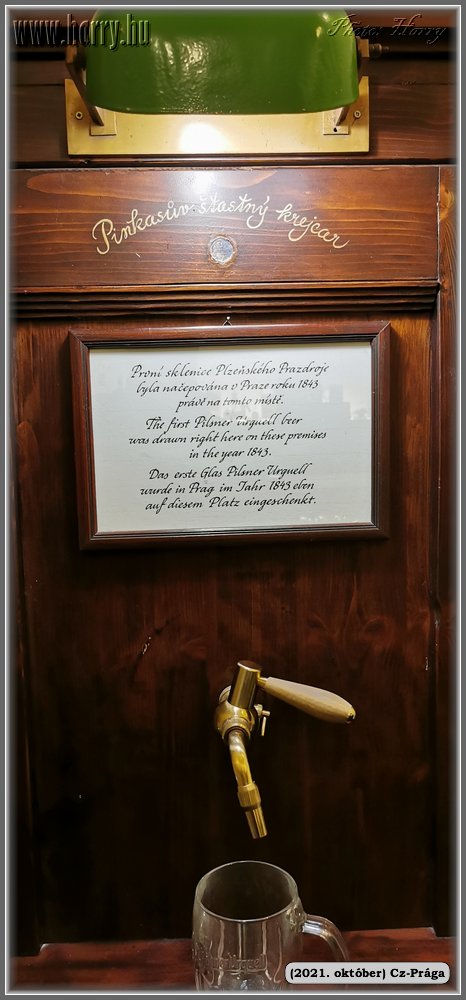 www.horry.hu
Photo: Horry
Pinkasův šťastný krejcar
První sklenice Plzeňského Prazdroje
byla načepována v Praze roku 1843
právě na tomto místě.
The first Pilsner Urquell beer
was drawn right here on these premises
in the year 1843.
Das erste Glas Pilsner Urquell
wurde in Prag im Jahr 1843 eben
auf diesem Platz eingeschenkt.
(2021. október) Cz-Prága